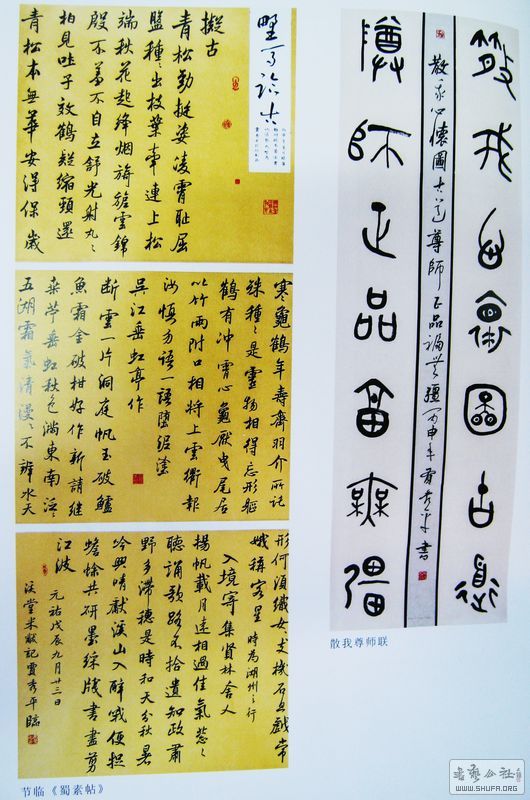 擬古
青松勁挺姿凌霄恥屈
盤種々出枝葉牽連上松
端秋花起絳烟旖旎雲錦
殷不羞不自立舒光射丸々
柏見吐子效鶴疑縮頸還
青松本無華安得保歲
寒龜鶴年壽齊羽介所託
殊種々是靈物相得忘形軀
鶴有冲霄心龜厭曳尾居
以竹兩附口相將上雲衢報
汝慎勿語一語墮泥塗
吳江垂虹亭作
断雲一片洞庭帆玉破鱸
魚霜金破柑好作新詩継
桑苧垂虹秋色滿東南泛々
五湖霜氣清漫々不辨水天
形何須織女支機石且戲常
娥稱客星 時為湖州之行
入境寄集賢林舍人
揚帆載月遠相過佳氣葱々
聽誦歌路不拾遺知政肅
野多滯穗是時和天分秋暑
吟興晴獻溪山入醉哦便捉
蟾蜍共研墨綵牋書盡剪
江波 元祐戊辰九月廿三日
溪堂米黻記賈秀平臨
节临《蜀素帖》
散我心懷圖大道
散我心懷圖大道尊師正品論無疆丙申年賈秀平書
尊師正品論無疆
散我尊师联
书艺公社
WWW.SHUFA.ORG